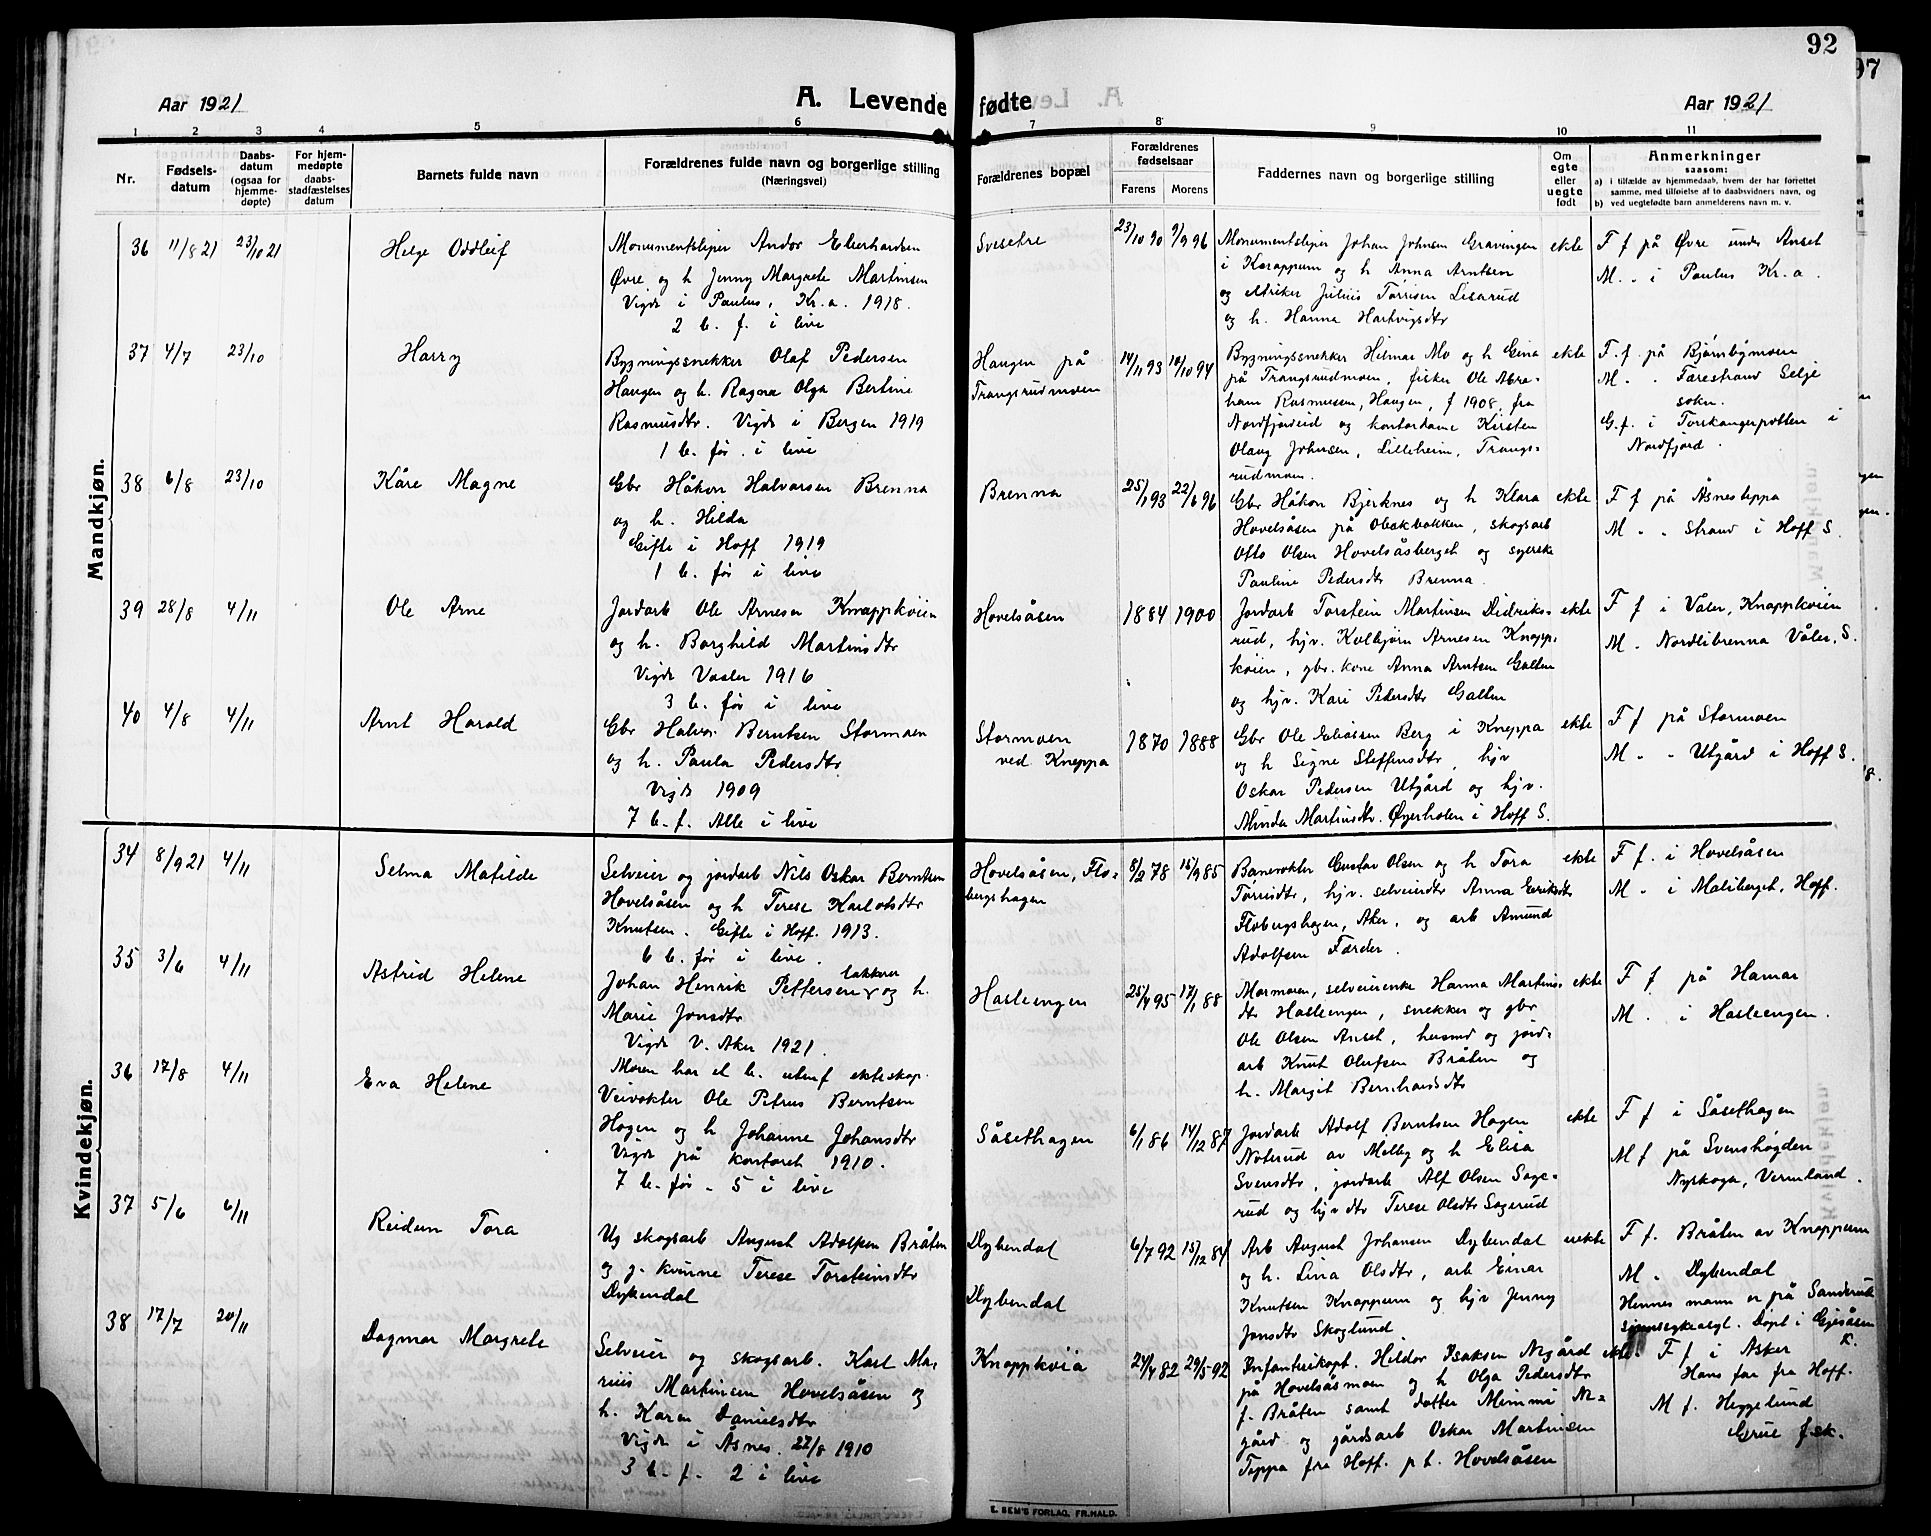 92
97
Aar 1921
A. Levende fødte
Aar 1921
1 2 3 4 5 6 7 8 9 10 11
Nr.
Fødsels-
datum
Daabs-
datum
(ogsaa for
hjemme-
døpte)
For hjem-
medøpte
daabs-
stadfæstelses
datum
Barnets fulde navn
Forældrenes fulde navn og borgerlige stilling
(Næringsvei)
Forældrenes bopæl
Forældrenes
fødselsaar
Farens Morens
Faddernes navn og borgerlige stilling
Om
egte
eller
uegte
født
Anmerkninger
saasom:
a) i tilfælde av hjemmedaab, hvem der har forrettet
samme, med tilføielse af to daabsvidners navn, og
b) ved uegtefødte barn anmelderens navn m. v.
Mandkjøn.
36 11/8 21 23/10 21
Helge Oddleif
Monumentsliper Andor Eberhardsen
Øvre og h. Jenny Margrete Martinsen
Vigde i Paulus, Kr.a. 1918.
2 b. f. i live
Svesetre
23/10 90 9/9 96
Monumentsliper Johan Johnsen Gravingen
i Knappum og h Anna Arntsen
og Julius Tørrisen Lisarud
og h. Hanna Hartvigsdtr
ekte
F f på Øvre under Anset
M. . i Paulus Kr. a.
37 4/7 23/10
Harry
Bygningssnekker Olaf Pedersen
Haugen og h. Ragna Olga Bertine
Rasmusdtr. Vigde i Bergen 1919
1 b. før. i live
Haugen på
Trangsrudmoen
14/11 93 10/10 94
Bygningssnekker Hilmar Mo og h Gina
på Trangsrudmoen, fisker Ole Abra-
ham Rasmussen, Haugen, f 1908 fra
Nordfjordeid og kontordame Kirsten
Olaug Johnsen, Lilleheim, Trangs-
rudmoen.
ekte
F. f. på Bjørnbymoen
M. . Farestrand Selje
sokn.
G. f. i Torskangerpollen i
Nordfjord.
38 6/8 23/10
Kåre Magne
Gbr Håkon Halvorsen Brenna
og h. Hilda
Gifte i Hoff 1919
1 b. før i live
Brenna
25/1 93 22/6 96
Gbr Håkon Bjerknes og h Klara
Hovelsåsen på skogsarb
Otto Olsen Hovelsåsberget og syerske
Pauline Pedersdtr Brenna.
ekte
F f på Åsnesteppa
M . . Strand i Hoff S.
39 28/8 4/11
Ole Arne
Jordarb Ole Arnesen Knappkøien
og h. Borghild Martinsdtr
Vigde Vaaler 1916
3 b. før i live
Hovelsåsen
1884 1900
Jordarb Torstein Martinsen Didriks-
rud, hjv. Kolbjørn Arnesen Knapp-
køien, gbr. kone Anna Arntsen Gallen
og hjv. Kari Pedersdtr Gallen
ekte
F f i Våler, Knappkøien
M. Nordlibrenna Våler, S.
40 4/8 4/11
Arnt Harald
Gbr Halvor Berntsen Stormoen
og h. Paula Pedersdtr
Vigde 1909
7 b. f. Alle i live
Stormoen
ved Kneppa
1870 1888
Gbr Ole Eliassen Berg i Kneppa
og h Signe Steffensdtr, hjv
Oskar Pedersen Utgård og hjv.
Minda Martinsdtr. Øyerholen i Hoff S.
ekte
F f på Stormoen
M . . Utgård i Hoff S.
Kvindekjøn.
34 8/9 21 4/11
Selma Matilde
Selveier og jordarb Nils Oskar Berntsen
Hovelsåsen og h Terese Karlotsdtr
Knutsen. Gifte i Hoff. 1913.
6 b. før i live.
Hovelsåsen, Flo-
bergshagen
8/2 78 15/9 85
Banevokter Gustav Olsen og h Tora
Tørrisdtr, hjv. selveierdtr Anna Eriksdtr
Flobergshagen, Aker, og arb Amund
Adolfsen Færder.
ekte
F f. i Hovelsåsen
M. . i Maliberget, Hoff.
35 3/6 4/11
Astrid Helene
Johan Henrik Pettersen lakkerer og h.
Marie Jonsdtr
Vigde V. Aker 1921.
Moren har et b. utenf ekteskap.
Hasleengen
25/4 95 17/1 88
Mormoren, selveierenke Hanna Martins-
dtr Hasleengen, snekker og gbr
Ole Olsen Anset, husmd og jord-
arb Knut Olufsen Bråten og
h. Margit Bernhardsdtr
ekte
F f på Hamar
M. . i Hasleengen.
36 17/8 4/11
Eva Helene
Veivokter Ole Petrus Berntsen
Hagen og h Johanne Johansdtr
Vigde på kontoret 1910.
7 b. før - 5 i live
Såsethagen
6/1 86 14/12 87
Jordarb Adolf Berntsen Hagen
Noterud av Melby og h Elisa
Svensdtr, jordarb Alf Olsen Sage-
rud og hjv dtr Terese Olsdtr Sagerud
ekte
F f i Såsethagen
M f på Svenshøgden
Nyskoga, Vermland.
37 5/6 6/11
Reidun Tora
Ug skogsarb August Adolfsen Bråten
og g. kvinne Terese Torsteinsdtr
Dybendal
Dybendal
Dybendal
6/7 92 15/12 84
Arb August Johansen Dybendal
og h. Lina Olsdtr, arb Einar
Knutsen Knappum og hjv Jenny
Jonsdtr Skoglund
uekte
F f. Bråten av Knappum
M . Dybendal
Hennes mann er på Sanderud
sinnssykeasyl. Døpt i Gjesåsen
K.
38 17/7 20/11
Dagmar Margrete
Selveier og skogsarb. Karl Ma-
rius Martinsen Hovelsåsen og
h. Karen Danielsdtr
Vigde i Åsnes 27/8 1910
3 b. f. 2 i live
Knappkøia
24/4 82 29/5 92
Infanterikapt. Heldor Isaksen Nygård
på Hovelsåsmoen og h Olga Pedersdtr
f. Bråten samt datter Mimmi Ny-
gård og gårdsarb Oskar Martinsen
Teppa fra Hoff. p. t. Hovelsåsen
ekte
F f i Asker
Hans far fra Hoff.
M f. Heggelund
Grue f.sk.
E. SEM'S FORLAG, FR.HALD.